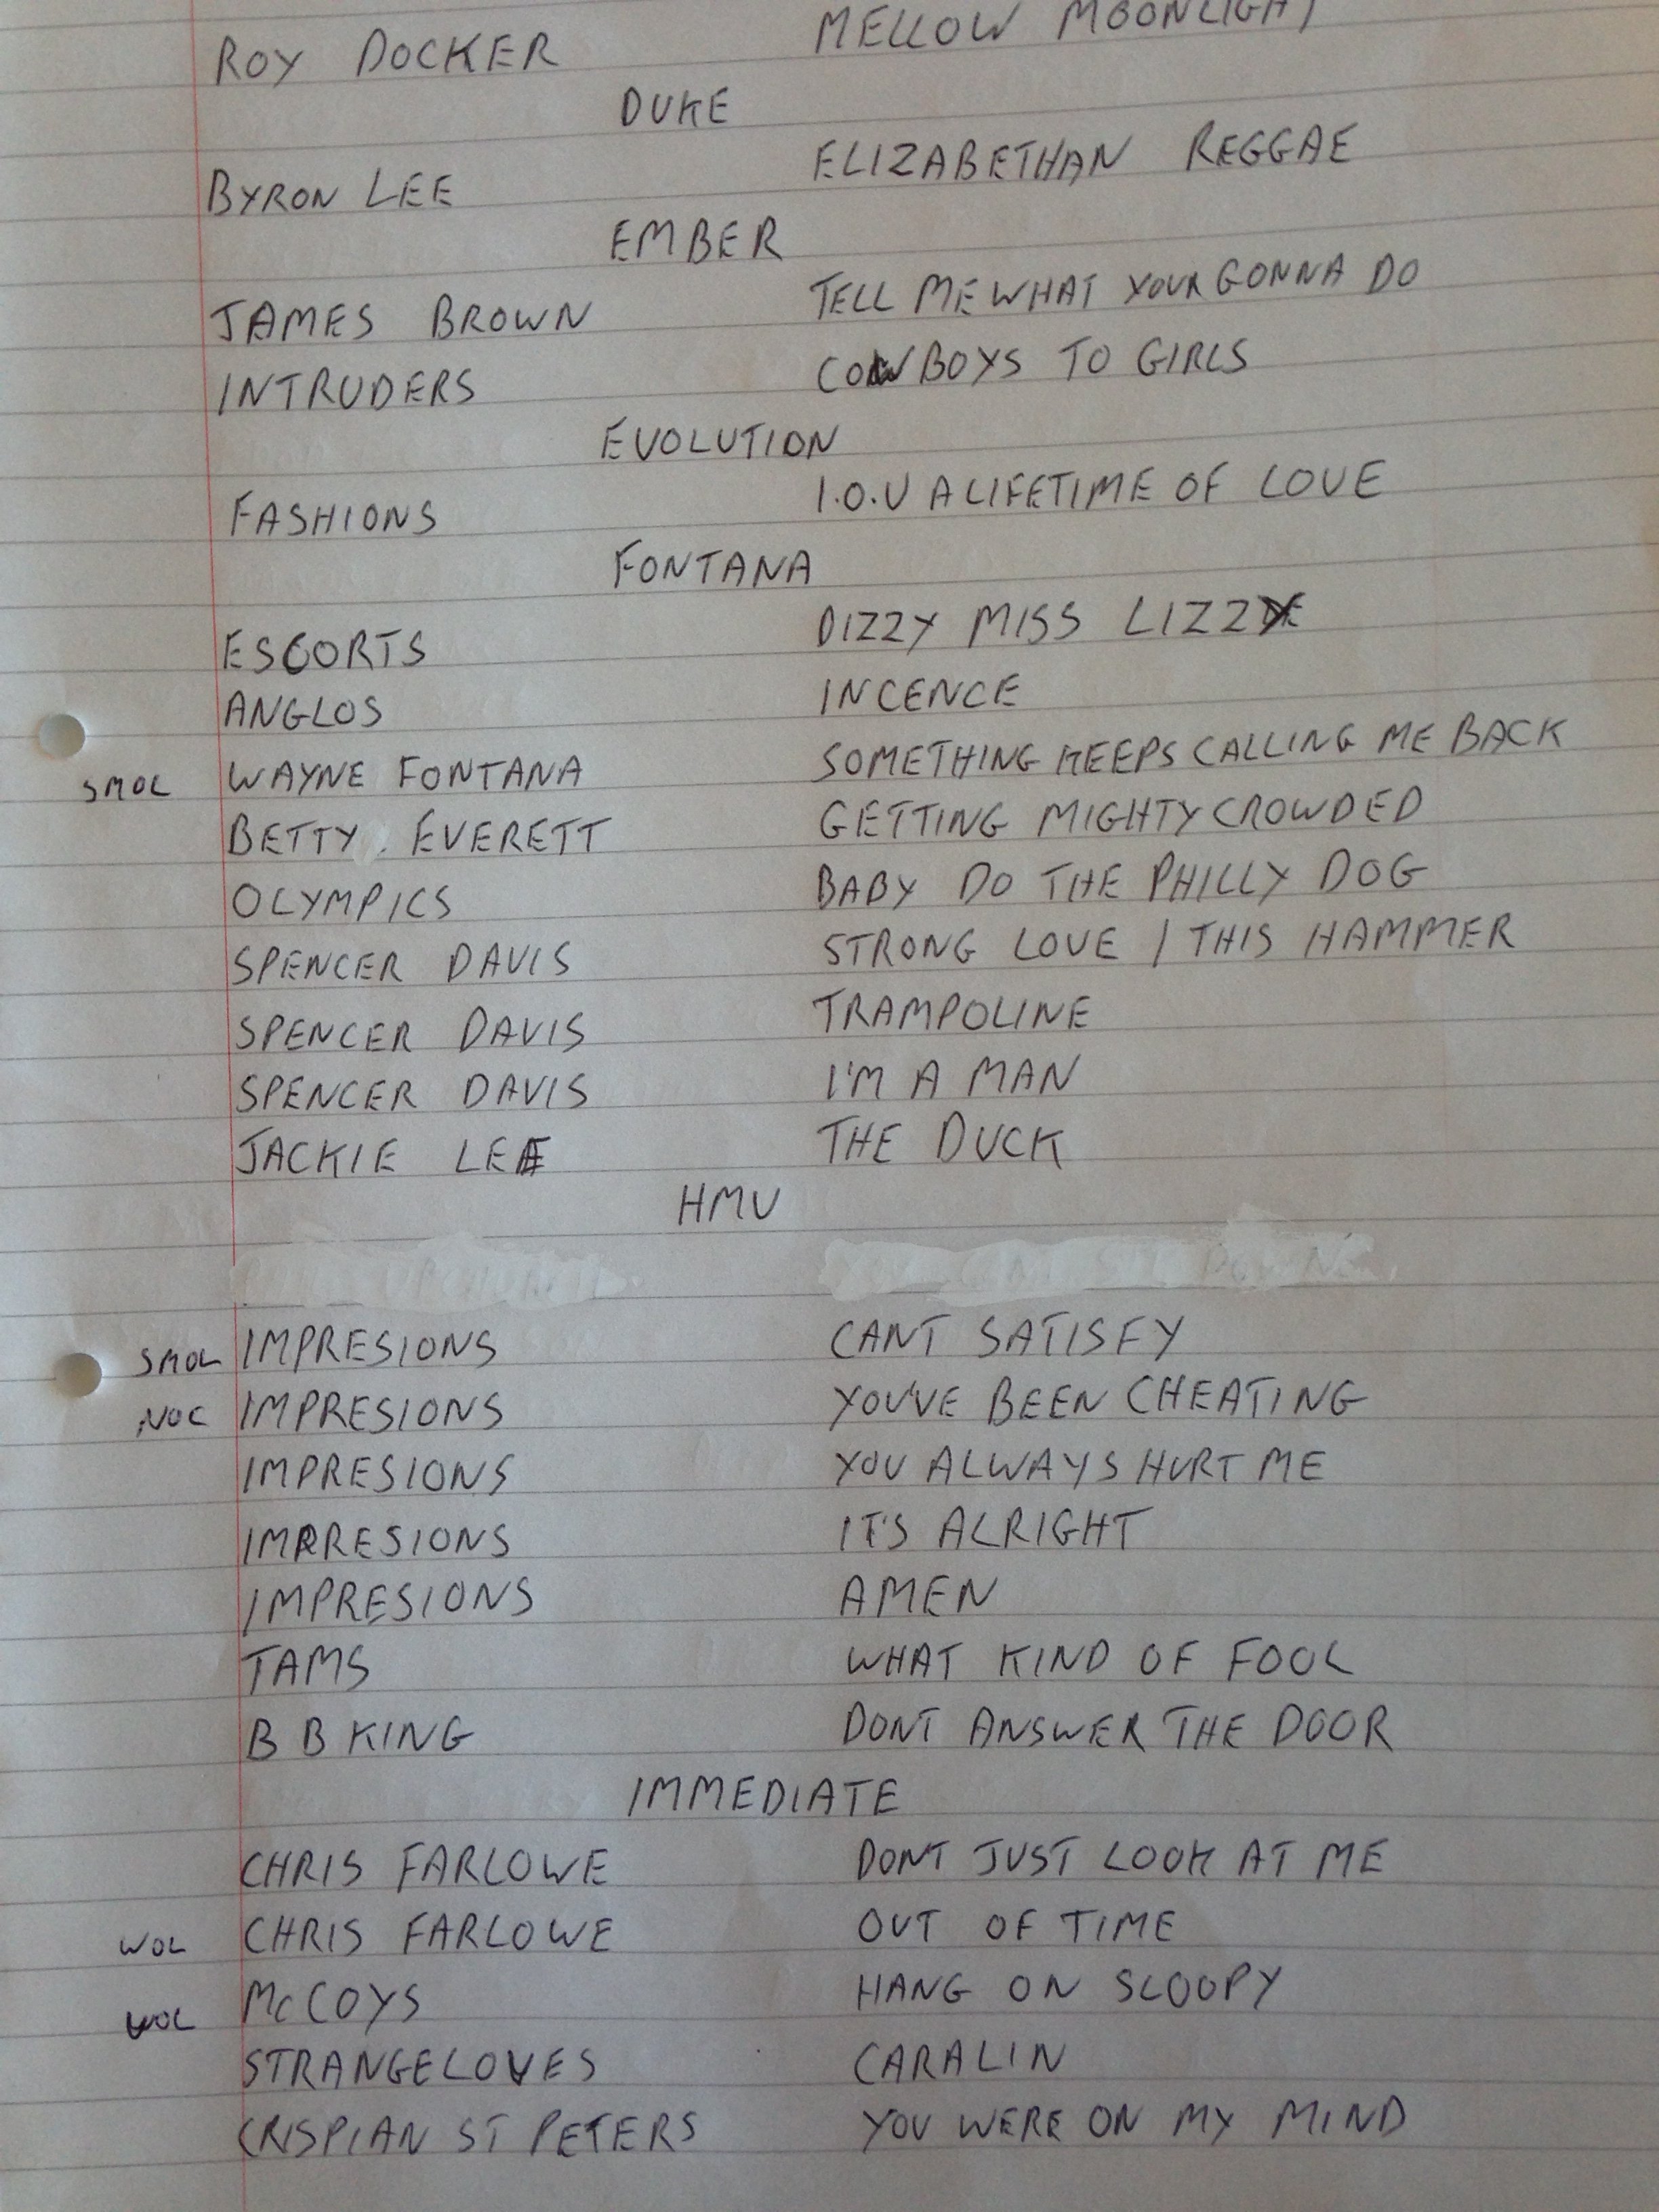 ROY DOCKER MELLOW MOONLIGHT
DUKE
BYRON LEE ELIZABETHAN REGGAE
EMBER
JAMES BROWN TELL ME WHAT YOUR GONNA DO
INTRUDERS COWBOYS TO GIRLS
EVOLUTION
FASHIONS I.O.U A LIFETIME OF LOVE
FONTANA
ESCORTS DIZZY MISS LIZZY
ANGLOS INCENCE
SMOL WAYNE FONTANA SOMETHING KEEPS CALLING ME BACK
BETTY EVERETT GETTING MIGHTY CROWDED
OLYMPICS BABY DO THE PHILLY DOG
SPENCER DAVIS STRONG LOVE / THIS HAMMER
SPENCER DAVIS TRAMPOLINE
SPENCER DAVIS I'M A MAN
JACKIE LEE THE DUCK
HMV
SMOL IMPRESIONS CANT SATISFY
NOC IMPRESIONS YOU'VE BEEN CHEATING
IMPRESIONS YOU ALWAYS HURT ME
IMPRESIONS IT'S ALRIGHT
IMPRESIONS AMEN
TAMS WHAT KIND OF FOOL
B B KING DONT ANSWER THE DOOR
IMMEDIATE
CHRIS FARLOWE DONT JUST LOOK AT ME
WOL CHRIS FARLOWE OUT OF TIME
WOL McCOYS HANG ON SLOOPY
STRANGELOVES CARALIN
CRISPIAN ST PETERS YOU WERE ON MY MIND